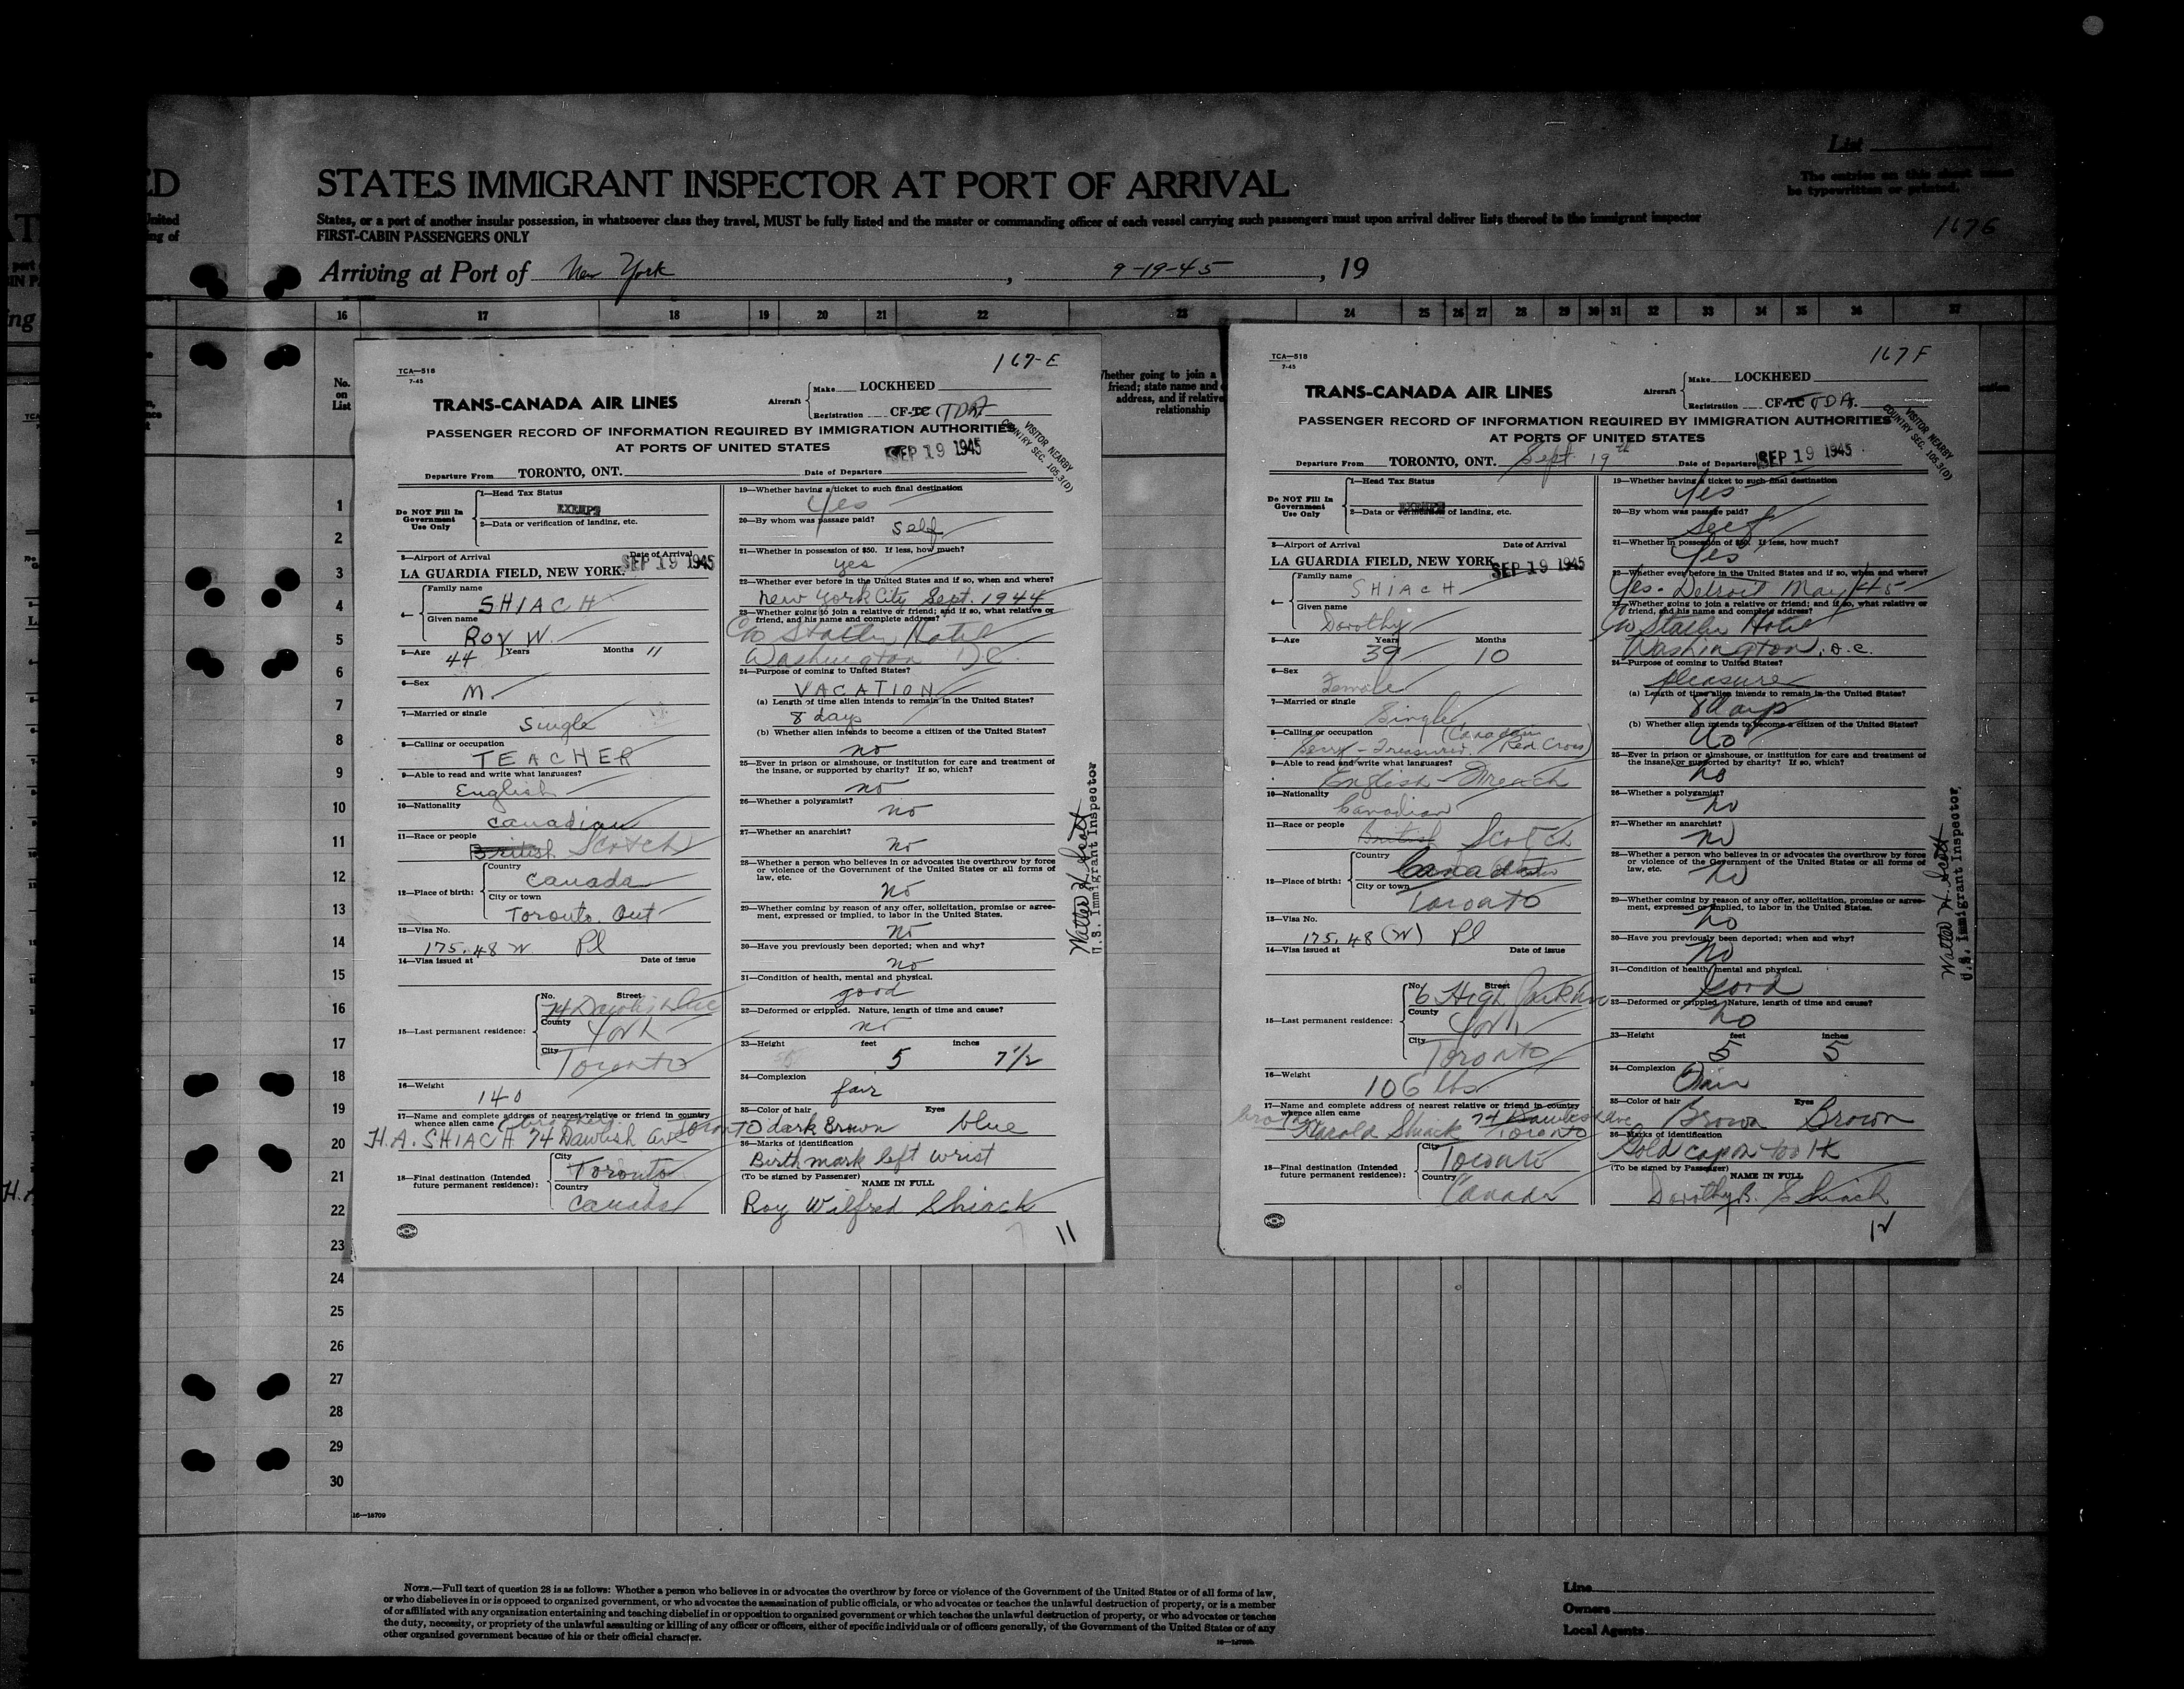 STATES IMMIGRANT INSPECTOR AT PORT OF ARRIVAL
States, or a port of another insular possession, in whatsoever class they travel, MUST be fully listed and the master or commanding officer of each vessel carrying such passengers must upon arrival deliver lists thereof to the immigrant inspector
FIRST-CABIN PASSENGERS ONLY
List
The entries on this sheet must
be typewritten or printed.
1676
Arriving at Port of New York, 9-19-45, 19
16 17 18 19 20 21 22 23 24 25 26 27 28 29 30 31 32 33 34 35 36 37
No.
on
List
Whether going to join a
friend; state name and
address, and if relative
relationship
1
2
3
4
5
6
7
8
9
10
11
12
13
14
15
16
17
18
19
20
21
22
23
24
25
26
27
28
29
30
TCA—518
7-45
167-E
TRANS-CANADA AIR LINES
Aircraft
Make LOCKHEED
Registration CF-TC TDA
PASSENGER RECORD OF INFORMATION REQUIRED BY IMMIGRATION AUTHORITIES
AT PORTS OF UNITED STATES
VISITOR NEARBY
COUNTRY SEC. 105.3(D)
Departure From TORONTO, ONT. Date of Departure SEP 19 1945
Do NOT Fill In
Government
Use Only
1—Head Tax Status
EXEMPT
2—Data or verification of landing, etc.
3—Airport of Arrival Date of Arrival
LA GUARDIA FIELD, NEW YORK. SEP 19 1945
4—
Family name
SHIACH
Given name
ROY W.
5—Age 44 Years Months 11
6—Sex
M.
7—Married or single
Single
8—Calling or occupation
TEACHER
9—Able to read and write what languages?
English
10—Nationality
Canadian
11—Race or people
British Scotch
12—Place of birth:
Country
Canada
City or town
Toronto, Ont
13—Visa No.
175.48 W. Pl
14—Visa issued at Date of issue
15—Last permanent residence:
No. Street
74 Dawlish Ave
County
York
City
Toronto
16—Weight
140
17—Name and complete address of nearest relative or friend in country
whence alien came (brother) Toronto
H.A. SHIACH 74 Dawlish Ave
18—Final destination (Intended
future permanent residence):
City
Toronto
Country
Canada
19—Whether having a ticket to such final destination
Yes
20—By whom was passage paid?
Self
21—Whether in possession of $50. If less, how much?
yes
22—Whether ever before in the United States and if so, when and where?
New York City Sept. 1944
23—Whether going to join a relative or friend; and if so, what relative or
friend, and his name and complete address?
c/o Statler Hotel
Washington D.C.
24—Purpose of coming to United States?
VACATION
(a) Length of time alien intends to remain in the United States?
8 days
(b) Whether alien intends to become a citizen of the United States?
no
25—Ever in prison or almshouse, or institution for care and treatment of
the insane, or supported by charity? If so, which?
no
26—Whether a polygamist?
no
27—Whether an anarchist?
No
28—Whether a person who believes in or advocates the overthrow by force
or violence of the Government of the United States or all forms of
law, etc.
No
29—Whether coming by reason of any offer, solicitation, promise or agree-
ment, expressed or implied, to labor in the United States.
No
30—Have you previously been deported; when and why?
no
31—Condition of health, mental and physical.
good
32—Deformed or crippled. Nature, length of time and cause?
no
33—Height feet inches
5 7½
34—Complexion
fair
35—Color of hair Eyes
dark Brown blue
36—Marks of identification
Birthmark left wrist
(To be signed by Passenger)
NAME IN FULL
Roy Wilfred Shiach
11
Walter H. Scott
U.S. Immigrant Inspector
TCA—518
7-45
167 F
TRANS-CANADA AIR LINES
Aircraft
Make LOCKHEED
Registration CF-TC TDA.
PASSENGER RECORD OF INFORMATION REQUIRED BY IMMIGRATION AUTHORITIES
AT PORTS OF UNITED STATES
VISITOR NEARBY
COUNTRY SEC. 105.3(D)
Departure From TORONTO, ONT. Sept. 19th Date of Departure SEP 19 1945
Do NOT Fill In
Government
Use Only
1—Head Tax Status
EXEMPT
2—Data or verification of landing, etc.
3—Airport of Arrival Date of Arrival
LA GUARDIA FIELD, NEW YORK SEP 19 1945
4—
Family name
SHIACH
Given name
Dorothy
5—Age Years Months
39 10
6—Sex
Female
7—Married or single
Single
8—Calling or occupation (Canadian
Secry-Treasurer. Red Cross)
9—Able to read and write what languages?
English - French
10—Nationality
Canadian
11—Race or people
British Scotch
12—Place of birth:
Country
Canada
City or town
Toronto
13—Visa No.
175.48 (W) Pl
14—Visa issued at Date of issue
15—Last permanent residence:
No. Street
6 High Park Ave
County
York
City
Toronto
16—Weight
106 lbs
17—Name and complete address of nearest relative or friend in country
whence alien came 74 Dawlish Ave
brother Harold Shiach Toronto
18—Final destination (Intended
future permanent residence):
City
Toronto
Country
Canada
19—Whether having a ticket to such final destination
Yes
20—By whom was passage paid?
Self
21—Whether in possession of $50. If less, how much?
Yes
22—Whether ever before in the United States and if so, when and where?
Yes - Detroit May/45
23—Whether going to join a relative or friend; and if so, what relative or
friend, and his name and complete address?
c/o Statler Hotel
Washington, D.C.
24—Purpose of coming to United States?
pleasure
(a) Length of time alien intends to remain in the United States?
8 days
(b) Whether alien intends to become a citizen of the United States?
No
25—Ever in prison or almshouse, or institution for care and treatment of
the insane, or supported by charity? If so, which?
no
26—Whether a polygamist?
no
27—Whether an anarchist?
no
28—Whether a person who believes in or advocates the overthrow by force
or violence of the Government of the United States or all forms of
law, etc.
no
29—Whether coming by reason of any offer, solicitation, promise or agree-
ment, expressed or implied, to labor in the United States.
no
30—Have you previously been deported; when and why?
No
31—Condition of health, mental and physical.
Good
32—Deformed or crippled. Nature, length of time and cause?
no
33—Height feet inches
5 5
34—Complexion
Fair
35—Color of hair Eyes
Brown Brown
36—Marks of identification
Gold cap on tooth
(To be signed by Passenger)
NAME IN FULL
Dorothy B. Shiach
12
Walter H. Scott
U.S. Immigrant Inspector.
16—18709
NOTE.—Full text of question 28 is as follows: Whether a person who believes in or advocates the overthrow by force or violence of the Government of the United States or of all forms of law,
or who disbelieves in or is opposed to organized government, or who advocates the assassination of public officials, or who advocates or teaches the unlawful destruction of property, or is a member
of or affiliated with any organization entertaining and teaching disbelief in or opposition to organized government or which teaches the unlawful destruction of property, or who advocates or teaches
the duty, necessity, or propriety of the unlawful assaulting or killing of any officer or officers, either of specific individuals or of officers generally, of the Government of the United States or of any
other organized government because of his or their official character.
Line
Owners
Local Agents